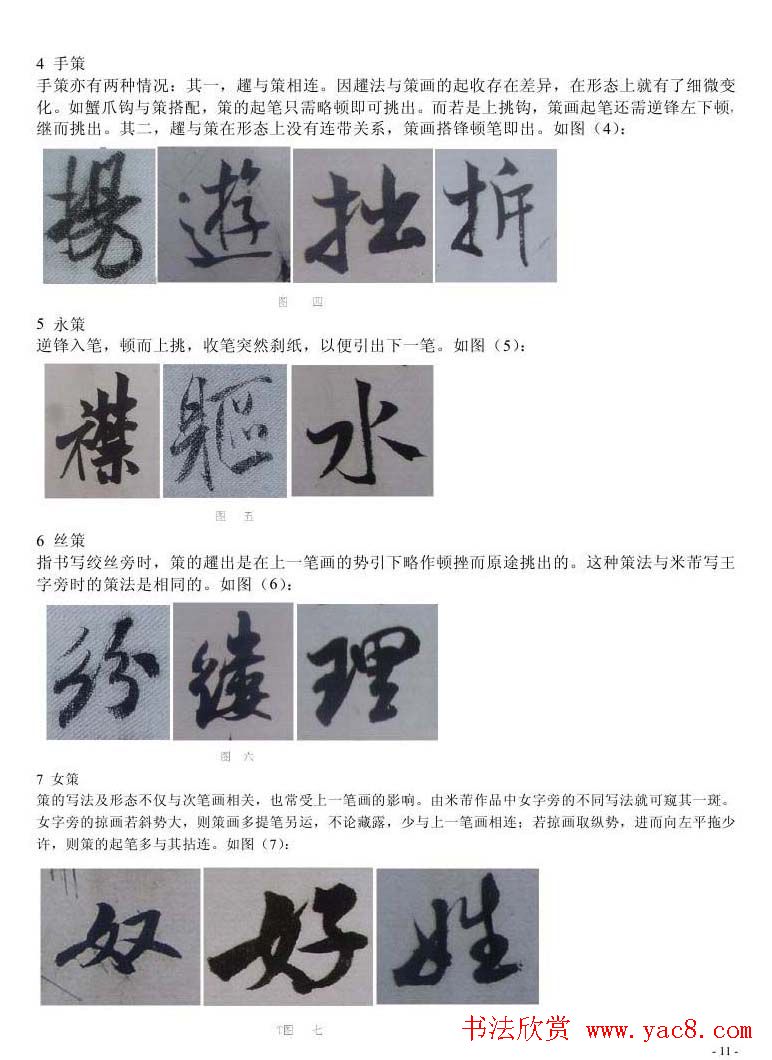 4 手策
手策亦有两种情况：其一，趯与策相连。因趯法与策画的起收存在差异，在形态上就有了细微变
化。如蟹爪钩与策搭配，策的起笔只需略顿即可挑出。而若是上挑钩，策画起笔还需逆锋左下顿，
继而挑出。其二，趯与策在形态上没有连带关系，策画搭锋顿笔即出。如图（4）：
揚 遊 拙 拆
图 四
5 永策
逆锋入笔，顿而上挑，收笔突然刹纸，以便引出下一笔。如图（5）：
襟 軀 水
图 五
6 丝策
指书写绞丝旁时，策的趯出是在上一笔画的势引下略作顿挫而原途挑出的。这种策法与米芾写王
字旁时的策法是相同的。如图（6）：
紛 縷 理
图 六
7 女策
策的写法及形态不仅与次笔画相关，也常受上一笔画的影响。由米芾作品中女字旁的不同写法就可窥其一斑。
女字旁的掠画若斜势大，则策画多提笔另运，不论藏露，少与上一笔画相连；若掠画取纵势，进而向左平拖少
许，则策的起笔多与其拈连。如图（7）：
奴 好 姓
T图 七
书法欣赏 www.yac8.com
- 11 -